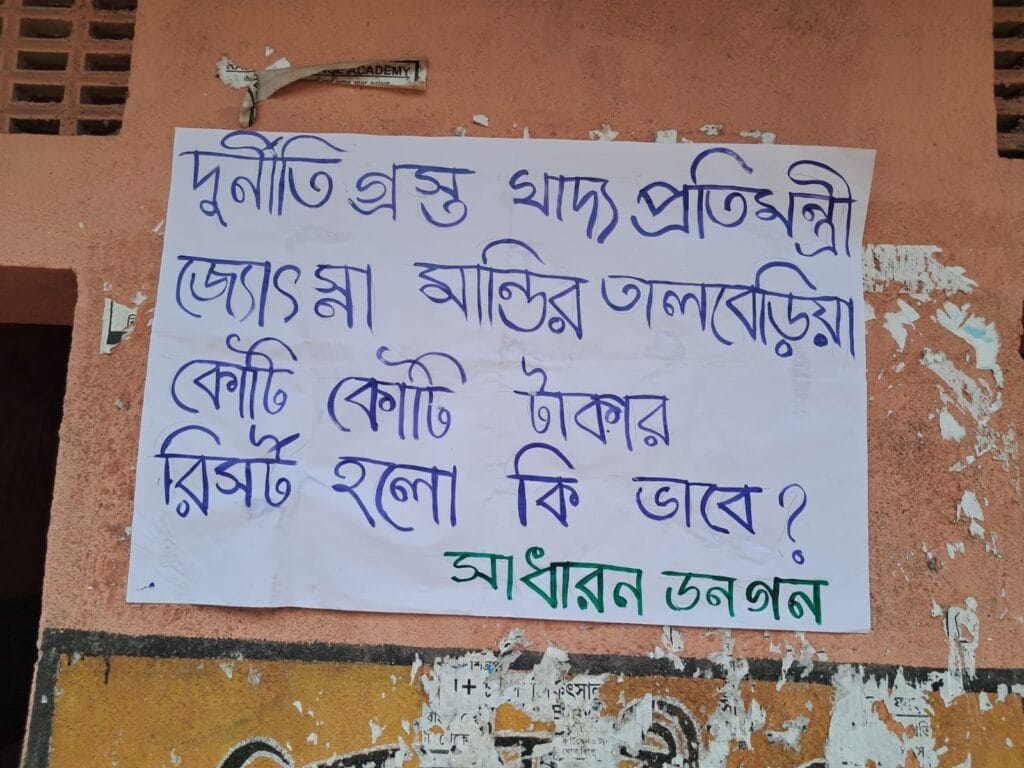 ACADEMY
দুর্নীতি গ্রস্ত খাদ্য প্রতিমন্ত্রী
জ্যোৎস্না মান্ডির তালবেড়িয়া
কোটি কোটি টাকার
রিসর্ট হলো কি ভাবে?
সাধারন জনগন